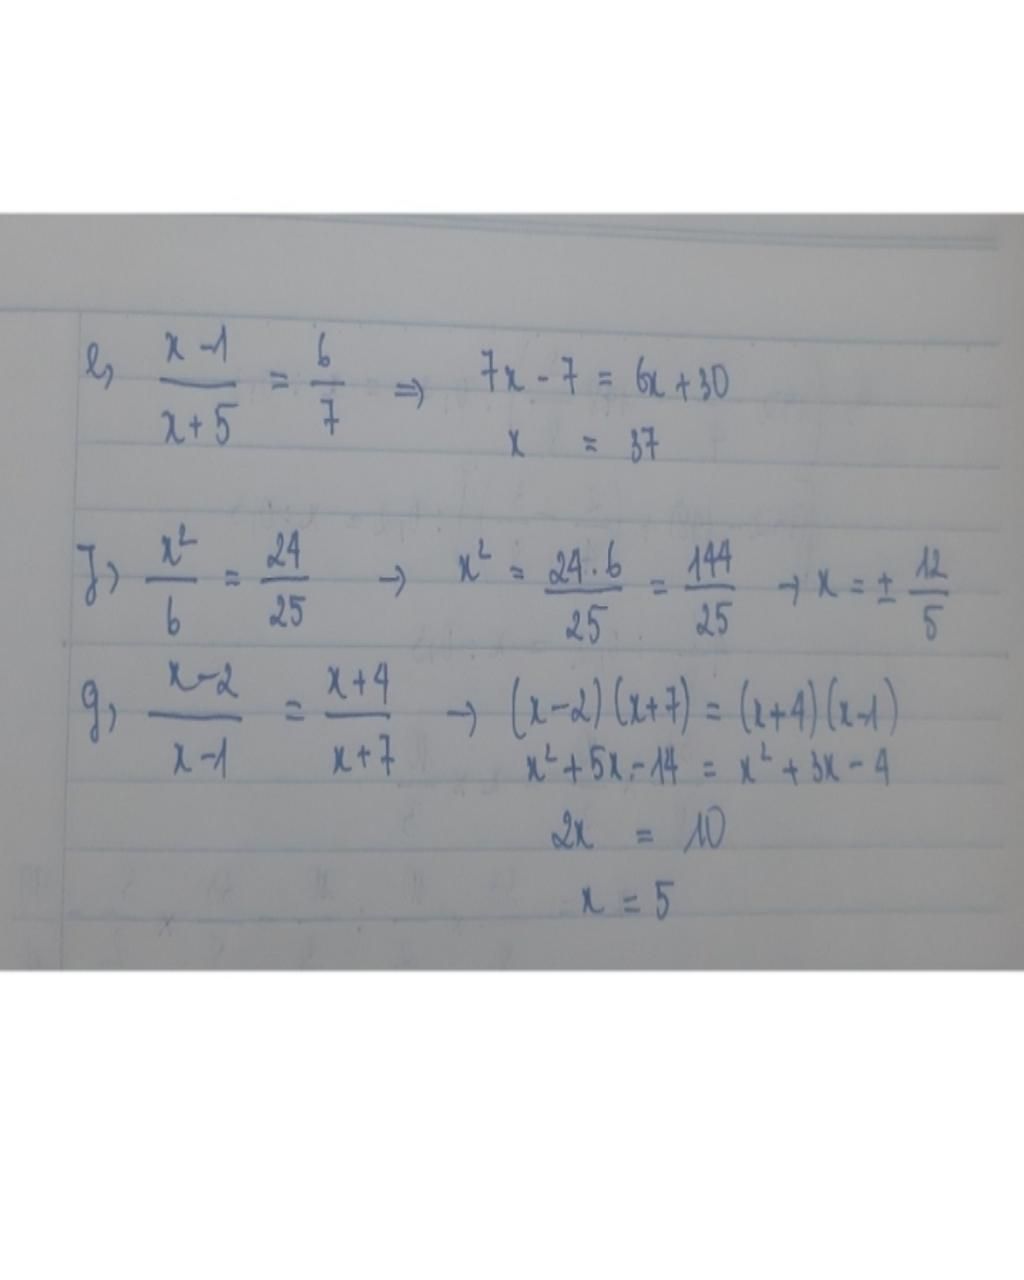 e, (x-1)/(x+5) = 6/7 => 7x - 7 = 6x + 30
x = 37
f, x²/6 = 24/25 → x² = (24.6)/25 = 144/25 → x = ± 12/5
g, (x-2)/(x-1) = (x+4)/(x+7) → (x-2)(x+7) = (x+4)(x-1)
x² + 5x - 14 = x² + 3x - 4
2x = 10
x = 5